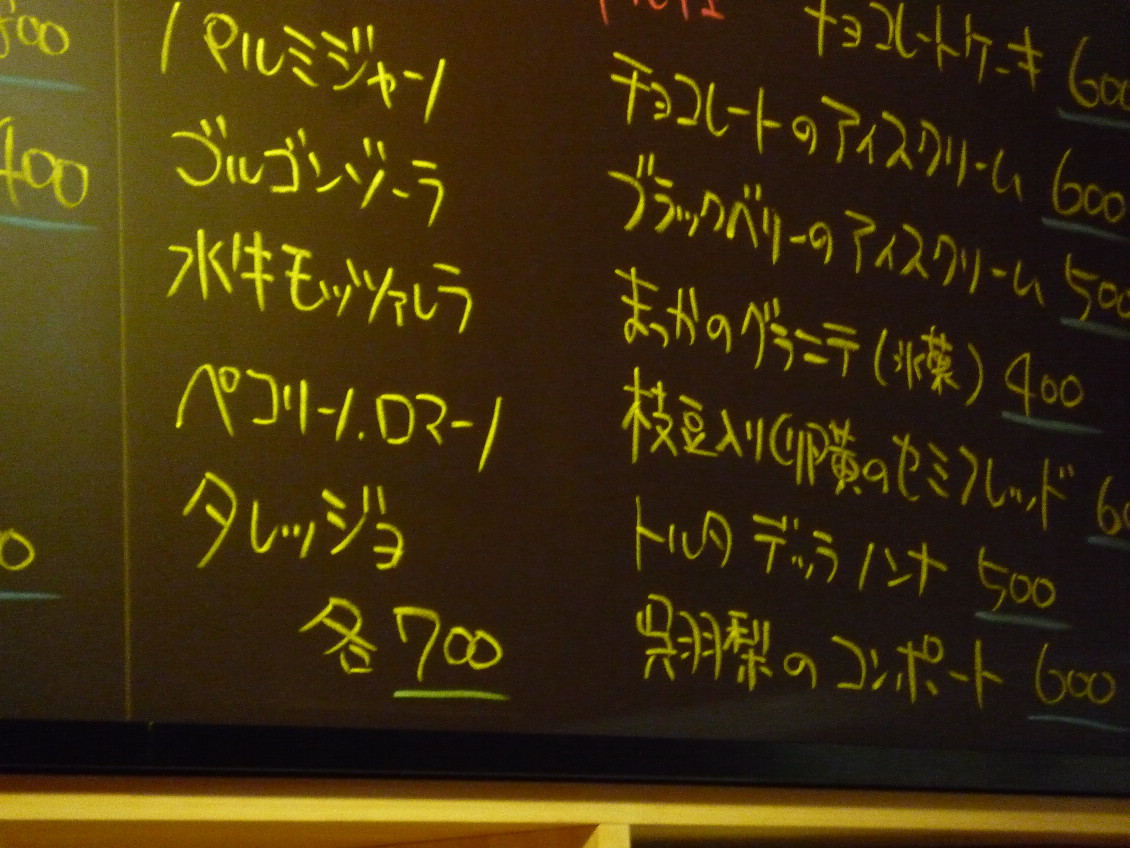 400
パルミジャーノ
ゴルゴンゾーラ
水牛モッツァレラ
ペコリーノ.ロマーノ
タレッジョ
各700
チョコレートケーキ 600
チョコレートのアイスクリーム 600
ブラックベリーのアイスクリーム 500
まっかのグラニテ(氷菓) 400
枝豆入り卵黄のセミフレッド
トルタデッラノンナ 500
呉羽梨のコンポート 600